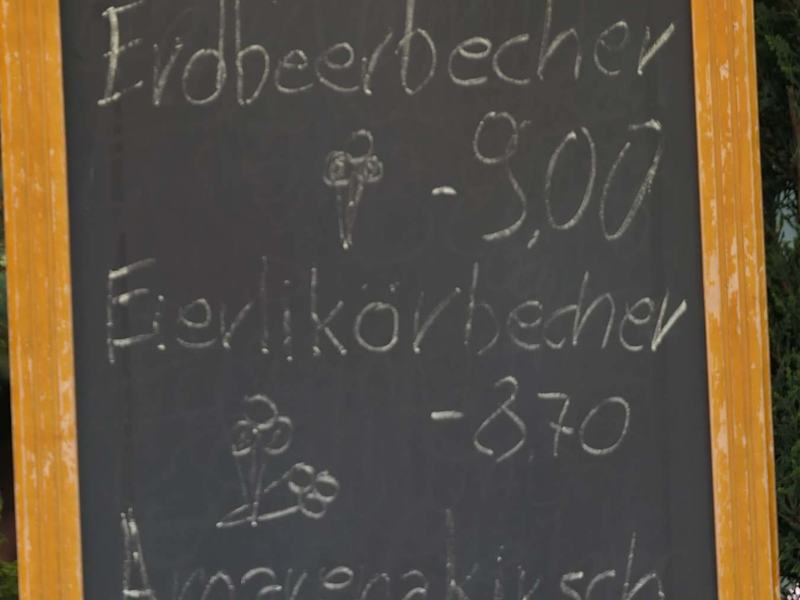 Erdbeerbecher
- 9,00
Eierlikörbecher
- 8,70
Amarenakirsch